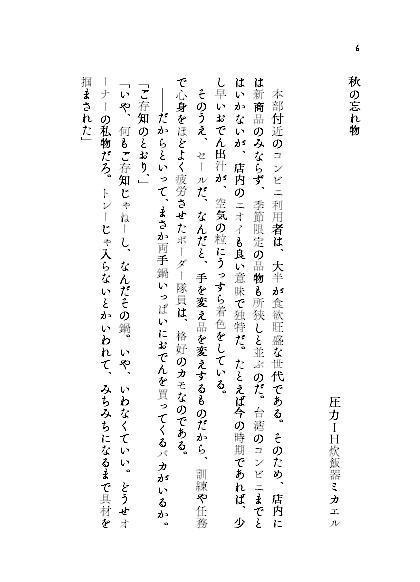 6
秋の忘れ物
圧力IH炊飯器ミカエル
本部付近のコンビニ利用者は、大半が食欲旺盛な世代である。そのため、店内に
は新商品のみならず、季節限定の品物も所狭しと並ぶのだ。台湾のコンビニまでと
はいかないが、店内のニオイも良い意味で独特だ。たとえば今の時期であれば、少
し早いおでん出汁が、空気の粒にうっすら着色をしている。
そのうえ、セールだ、なんだと、手を変え品を変えするものだから、訓練や任務
で心身をほどよく疲労させたボーダー隊員は、格好のカモなのである。
――だからといって、まさか両手鍋いっぱいにおでんを買ってくるバカがいるか。
「ご存知のとおり、」
「いや、何もご存知じゃねーし、なんだその鍋。いや、いわなくていい。どうせオ
ーナーの私物だろ。トンーじゃ入らないとかいわれて、みちみちになるまで具材を
掴まされた」